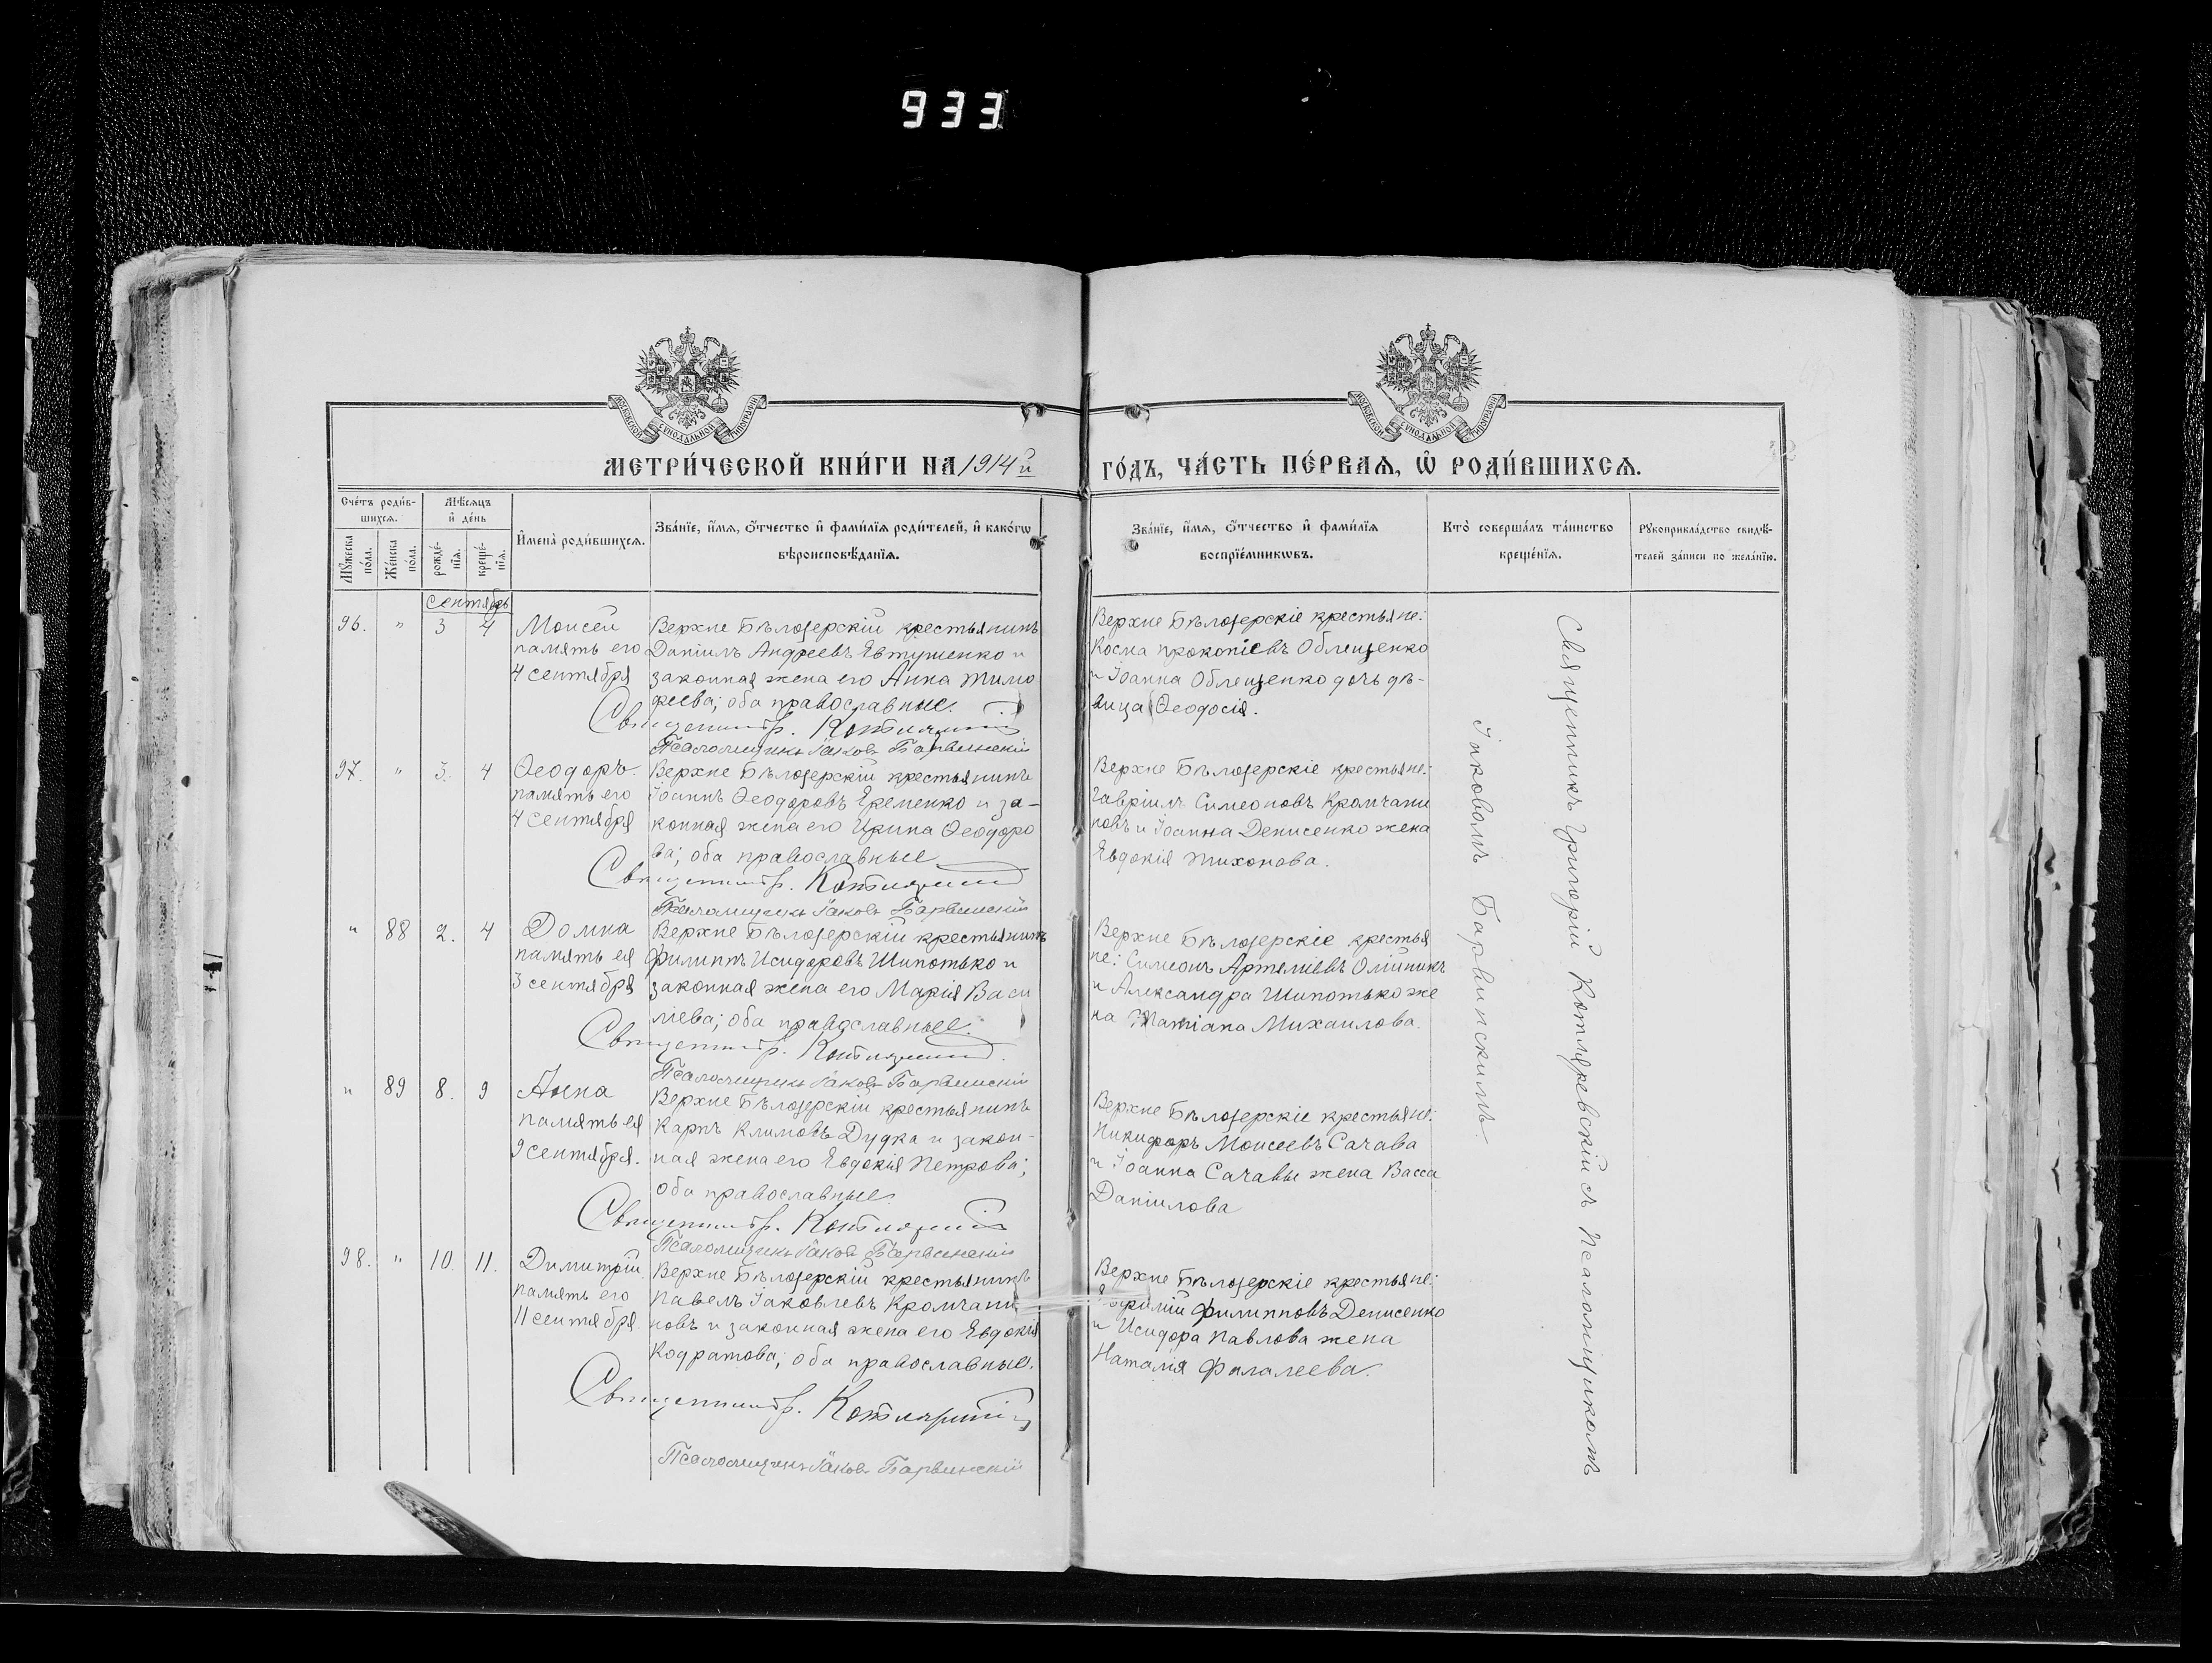 933
МОСКОВСКОЙ СѴНОДАЛЬНОЙ ТИПОГРАФІИ
МОСКОВСКОЙ СѴНОДАЛЬНОЙ ТИПОГРАФІИ
МЕТРИ́ЧЕСКОЙ КНИ́ГИ НА 1914й ГО́ДЪ, ЧА́СТЬ ПЕ́РВАѦ, Ѿ РОДИ́ВШИХСѦ.
Сче́тъ роди́в-
шихсѧ.
Мꙋ́жеска по́ла.
Же́нска по́ла.
Мѣ́сѧцъ
и҆ де́нь
рожде́-
нїѧ.
креще́-
нїѧ.
И҆мена̀ роди́вшихсѧ.
Зва́нїе, и҆́мѧ, ѻ҆́тчество и҆ фами́лїѧ роди́телей, и҆ како́гѡ
вѣроисповѣ́данїѧ.
Зва́нїе, и҆́мѧ, ѻ҆́тчество и҆ фами́лїѧ
воспрїе́мникѡвъ.
Кто̀ соверша́лъ та́инство
креще́нїѧ.
Рꙋкоприкла́дство свидѣ́-
телей за́писи по жела́нїю.
сентябрь
96. " 3 4
Моисей
память его
4 сентября
Верхне Бѣлозерскій крестьянинъ
Даніилъ Андреевъ Евтушенко и
законная жена его Анна Тимо
феева; оба православные.
Священник Гр. Котляревскій
Псаломщикъ Іаковъ Барвинскій
Верхне Бѣлозерскіе крестьяне:
Косма Прокопіевъ Облещенко
и Іоанна Облещенко дочь дѣ-
вица Ѳеодосія.
97. " 3. 4
Ѳеодоръ
память его
4 сентября
Верхне Бѣлозерскій крестьянинъ
Іоаннъ Ѳеодоровъ Еременко и за-
конная жена его Ирина Ѳеодоро
ва; оба православные
Священник Гр. Котляревскій
Псаломщикъ Іаковъ Барвинскій
Верхне Бѣлозерскіе крестьяне:
Гавріилъ Симеоновъ Кромчани
новъ и Іоанна Денисенко жена
Евдокія Тихонова.
" 88 2. 4
Домна
память ея
3 сентября
Верхне Бѣлозерскій крестьянинъ
Филиппъ Исидоровъ Шипотько и
законная жена его Марія Васи
ліева; оба православные.
Священник Гр. Котляревскій
Псаломщикъ Іаковъ Барвинскій
Верхне Бѣлозерскіе крестья
не: Симеонъ Артеміевъ Олійникъ
и Александра Шипотько же
на Татіана Михаилова.
" 89 8. 9
Анна
память ея
9 сентября.
Верхне Бѣлозерскій крестьянинъ
Карпъ Климовъ Дудка и закон-
ная жена его Евдокія Петрова;
оба православные
Священник Гр. Котляревскій
Псаломщикъ Іаковъ Барвинскій
Верхне Бѣлозерскіе крестьяне:
Никифоръ Моисеевъ Сачава
и Іоанна Сачавы жена Васса
Даніилова
98. " 10. 11.
Димитрій
память его
11 сентября
Верхне Бѣлозерскій крестьянинъ
Павелъ Іаковлевъ Кромчани
новъ и законная жена его Евдокія
Кодратова; оба православные.
Священник Гр. Котляревскій
Псаломщикъ Іаковъ Барвинскій
Верхне Бѣлозерскіе крестьяне:
Филипповъ Денисенко
и Исидора Павлова жена
Наталія Фалалеева.
Священникъ Григорій Котляревскій съ псаломщикомъ
Іаковомъ Барвинскимъ.